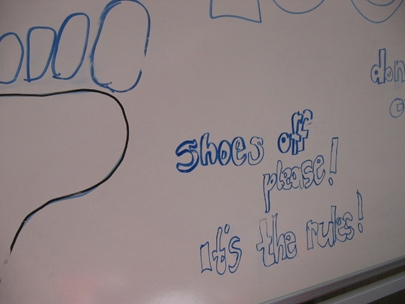 shoes off
please!
it's the rules!